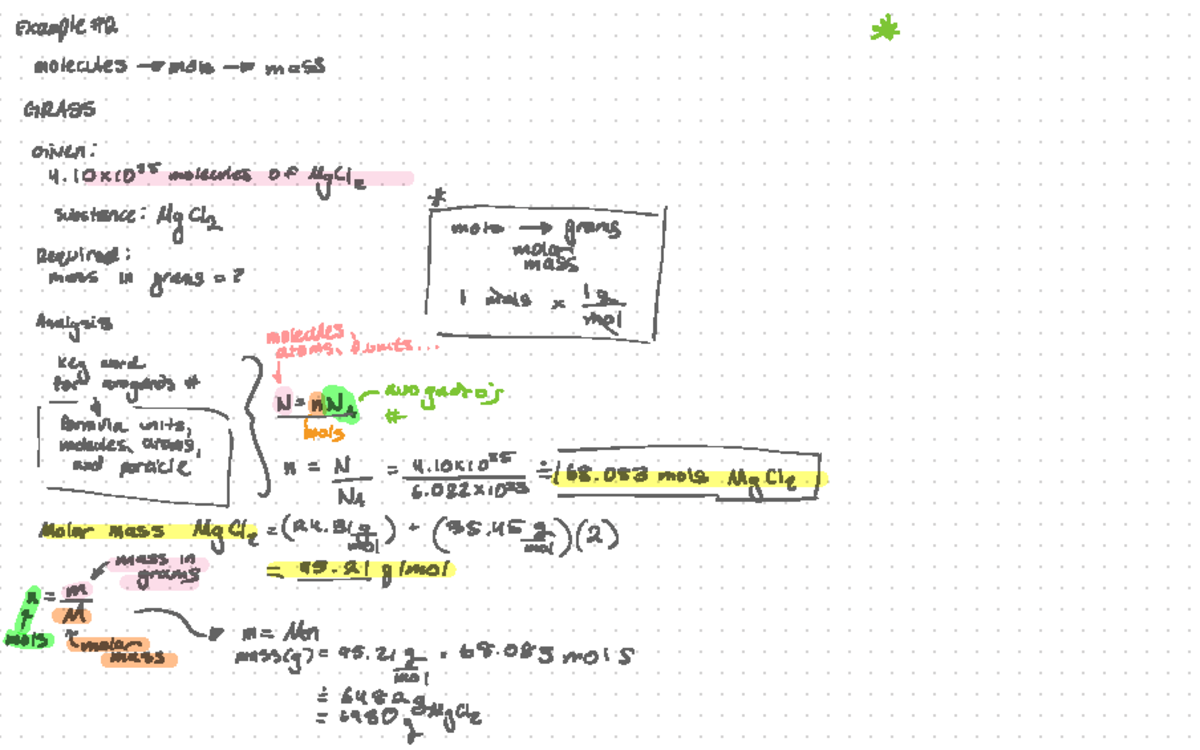 Example #2
molecules → mols → mass
GRASS
Given:
4.10×10²⁵ molecules of MgCl₂
Substance: MgCl₂
Required:
mass in grams = ?
*
mols → grams
molar
mass
1 mols × 1g/mol
Analysis
Key word
for avogadro's #
formula units,
molecules, atoms,
and particle
molecules,
atoms, f.units...
N = nNₐ
avogadro's
#
mols
n = N/Nₐ = 4.10×10²⁵/6.022×10²³ ≐ 68.083 mols MgCl₂
Molar mass MgCl₂ = (24.31 g/mol) + (35.45 g/mol)(2)
= 95.21 g/mol
n = m/M
mass in
grams
mols
molar
mass
m = Mn
mass(g) = 95.21 g/mol · 68.083 mols
≐ 6482 g
≐ 6480 g MgCl₂